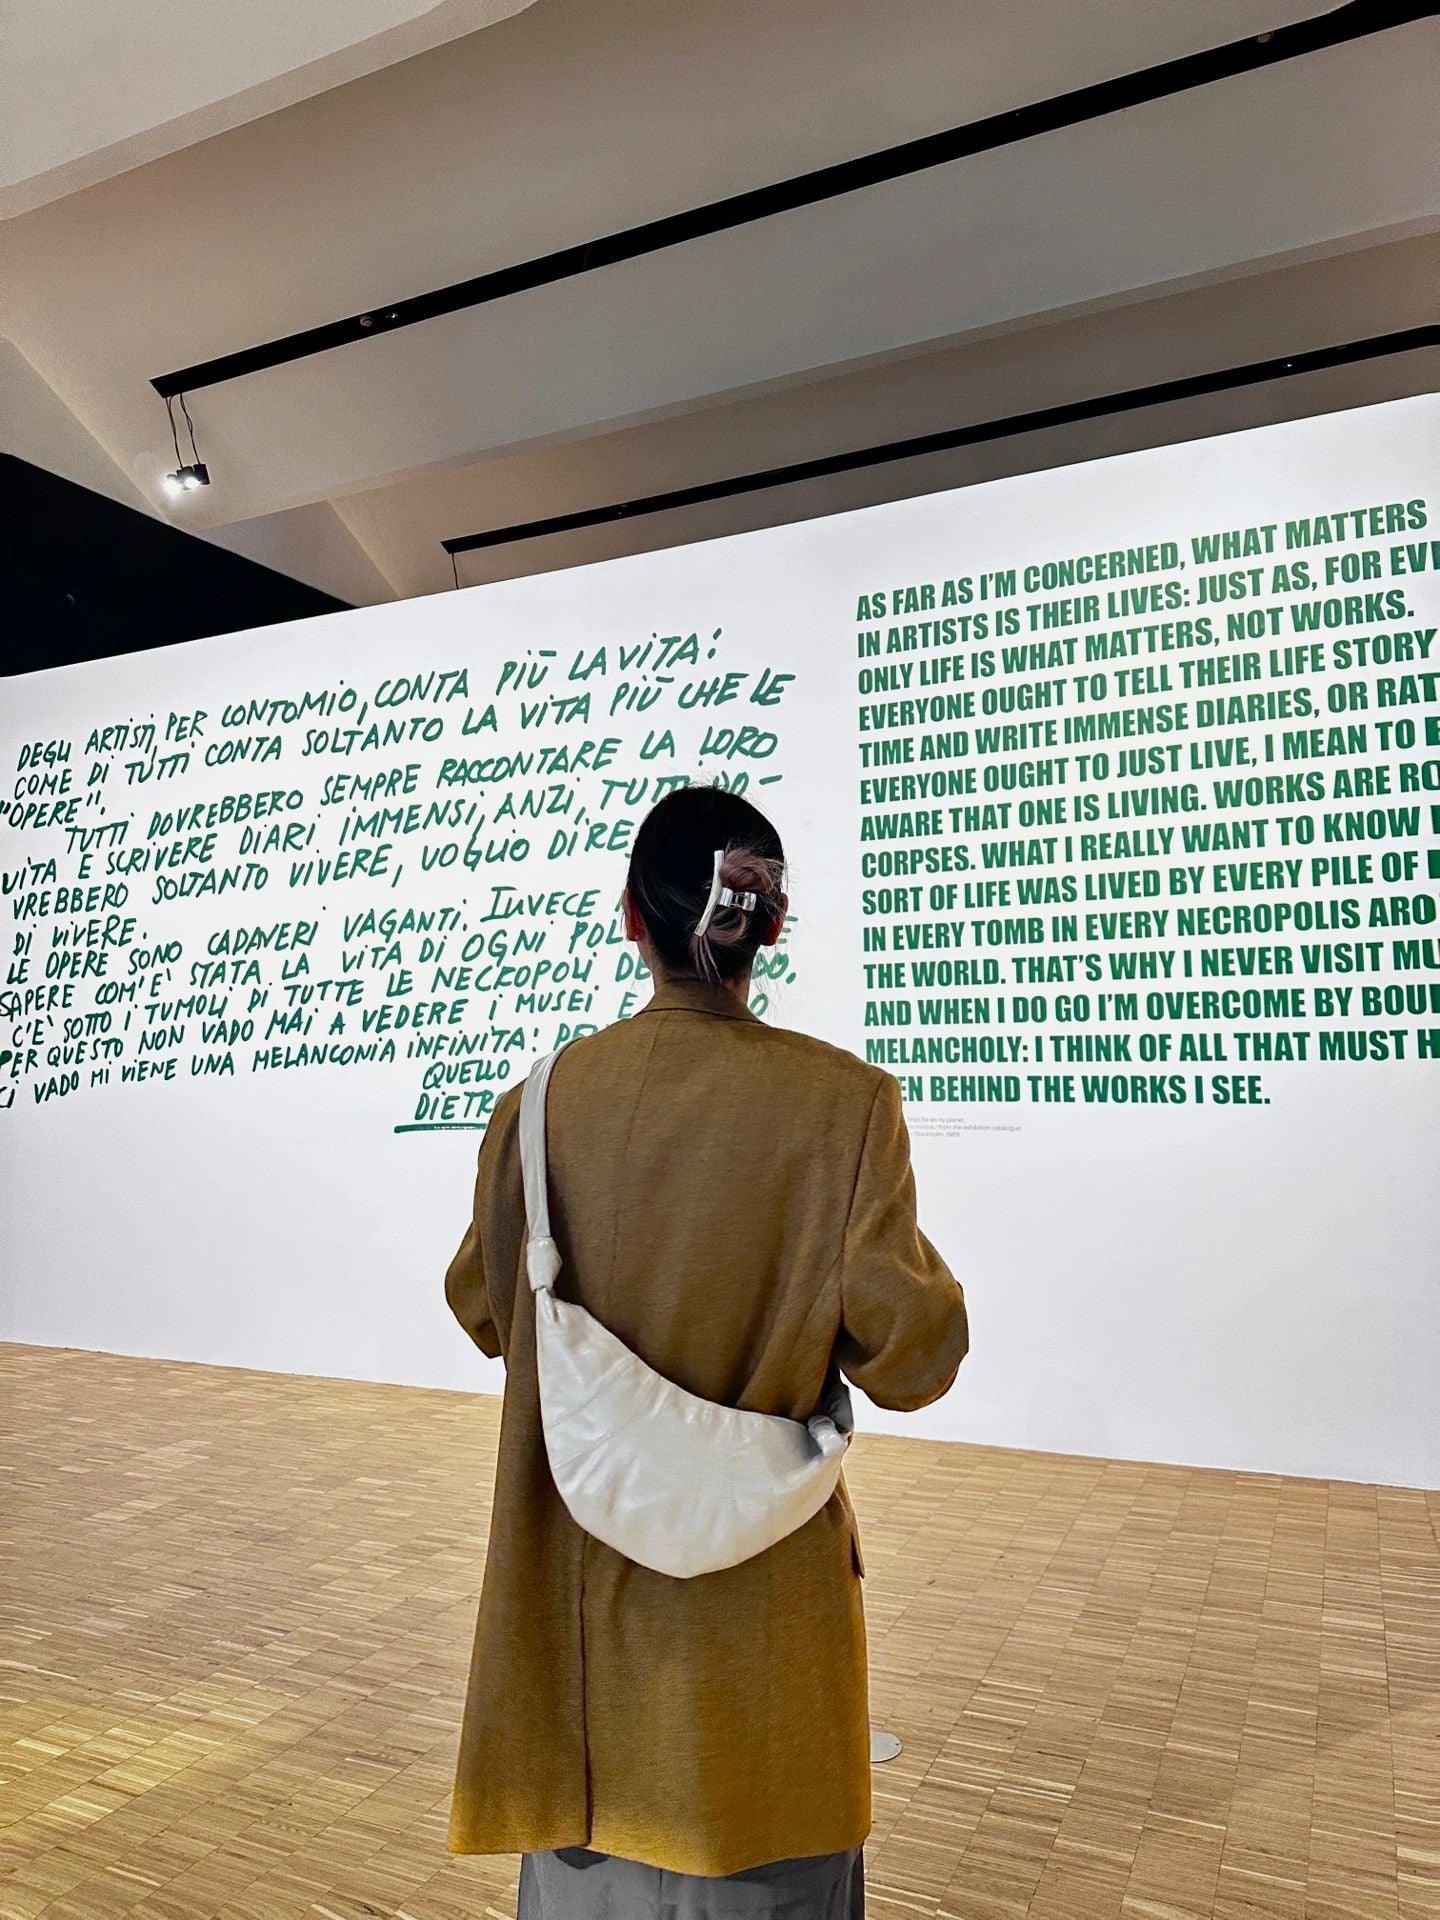 DEGLI ARTISTI, PER CONTO MIO, CONTA PIÙ LA VITA:
COME DI TUTTI CONTA SOLTANTO LA VITA PIÙ CHE LE
"OPERE".
TUTTI DOVREBBERO SEMPRE RACCONTARE LA LORO
VITA E SCRIVERE DIARI IMMENSI, ANZI, TUTTI DO-
VREBBERO SOLTANTO VIVERE, VOGLIO DIRE
DI VIVERE.
LE OPERE SONO CADAVERI VAGANTI. INVECE
SAPERE COM'E' STATA LA VITA DI OGNI
C'E' SOTTO I TUMOLI DI TUTTE LE NECROPOLI
PER QUESTO NON VADO MAI A VEDERE I MUSEI E
CI VADO MI VIENE UNA MELANCONIA INFINITA:
QUELLO
DIETRO
AS FAR AS I'M CONCERNED, WHAT MATTERS
IN ARTISTS IS THEIR LIVES: JUST AS, FOR
ONLY LIFE IS WHAT MATTERS, NOT WORKS.
EVERYONE OUGHT TO TELL THEIR LIFE STORY
TIME AND WRITE IMMENSE DIARIES, OR
EVERYONE OUGHT TO JUST LIVE, I MEAN TO
AWARE THAT ONE IS LIVING. WORKS ARE
CORPSES. WHAT I REALLY WANT TO KNOW
SORT OF LIFE WAS LIVED BY EVERY PILE OF
IN EVERY TOMB IN EVERY NECROPOLIS
THE WORLD. THAT'S WHY I NEVER VISIT
AND WHEN I DO GO I'M OVERCOME BY
MELANCHOLY: I THINK OF ALL THAT MUST
BEHIND THE WORKS I SEE.
mostra / from the exhibition catalogue
Stockholm, 1969